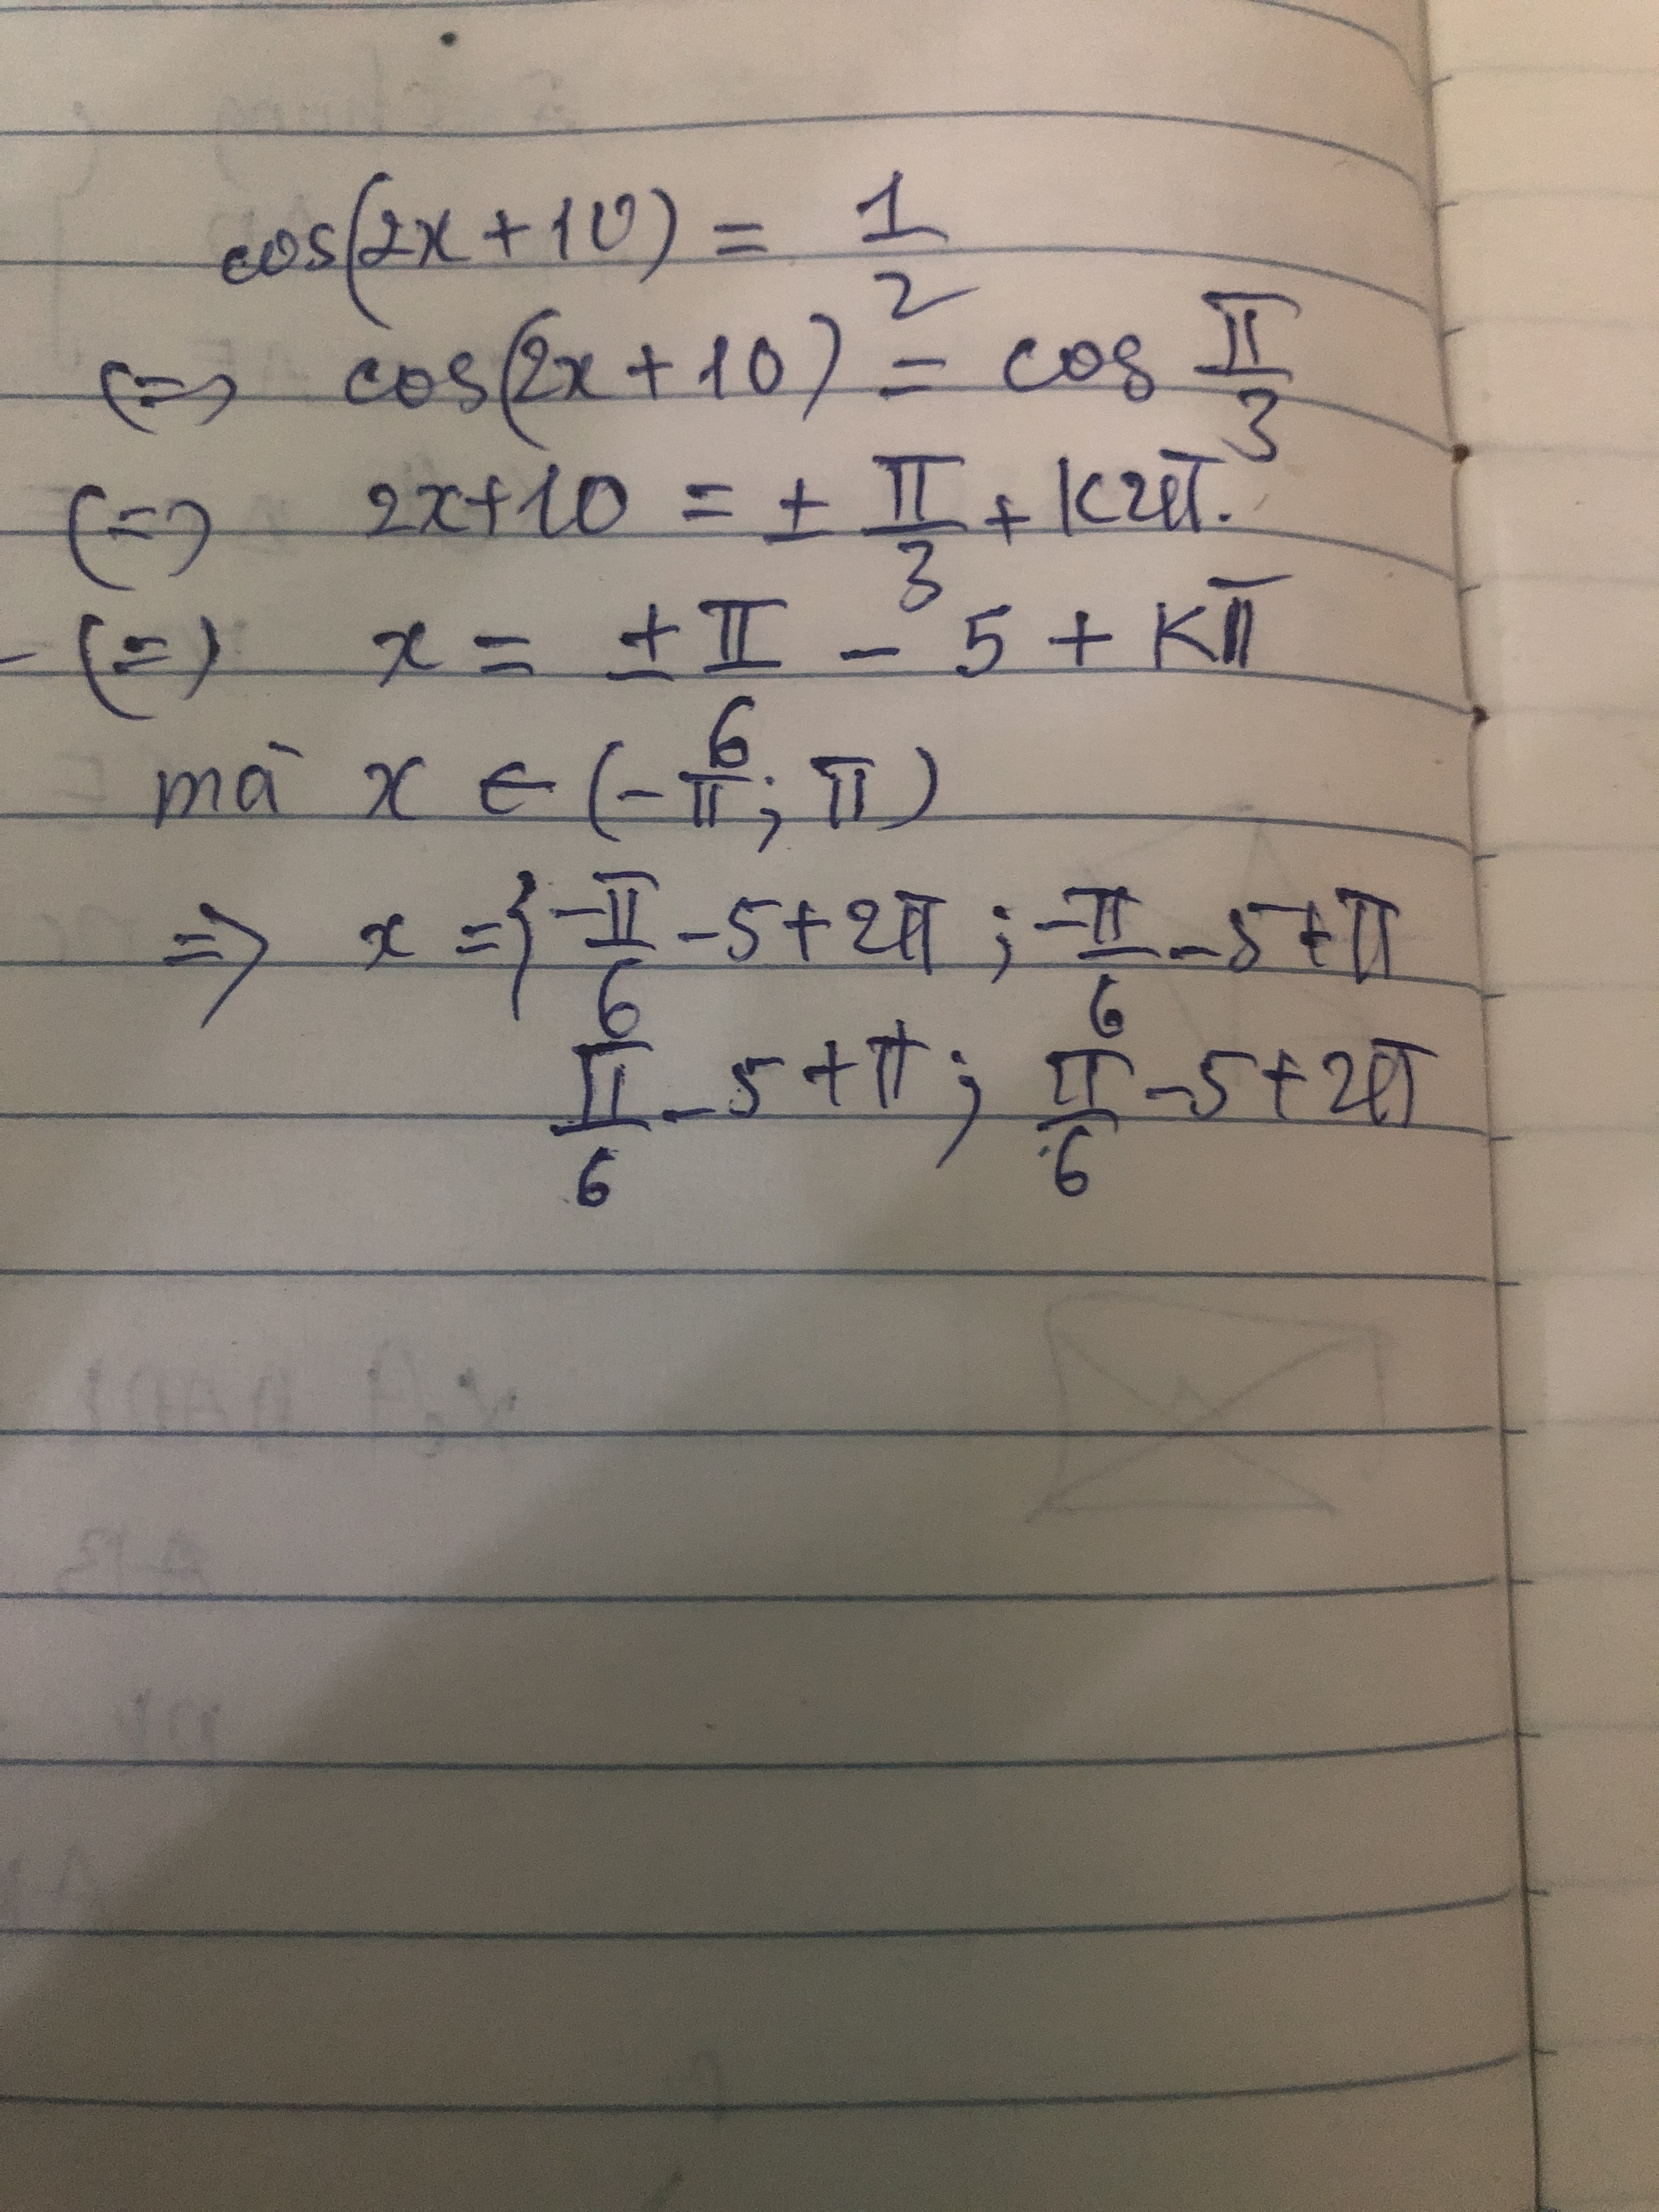 cos(2x+10) = 1/2
(=) cos(2x+10) = cos π/3
(=) 2x+10 = ± π/3 + K2π.
- (=) x = ± π/6 - 5 + Kπ
mà x ∈ (-π; π)
=> x = { -π/6 - 5 + 2π ; -π/6 - 5 + π
π/6 - 5 + π ; π/6 - 5 + 2π